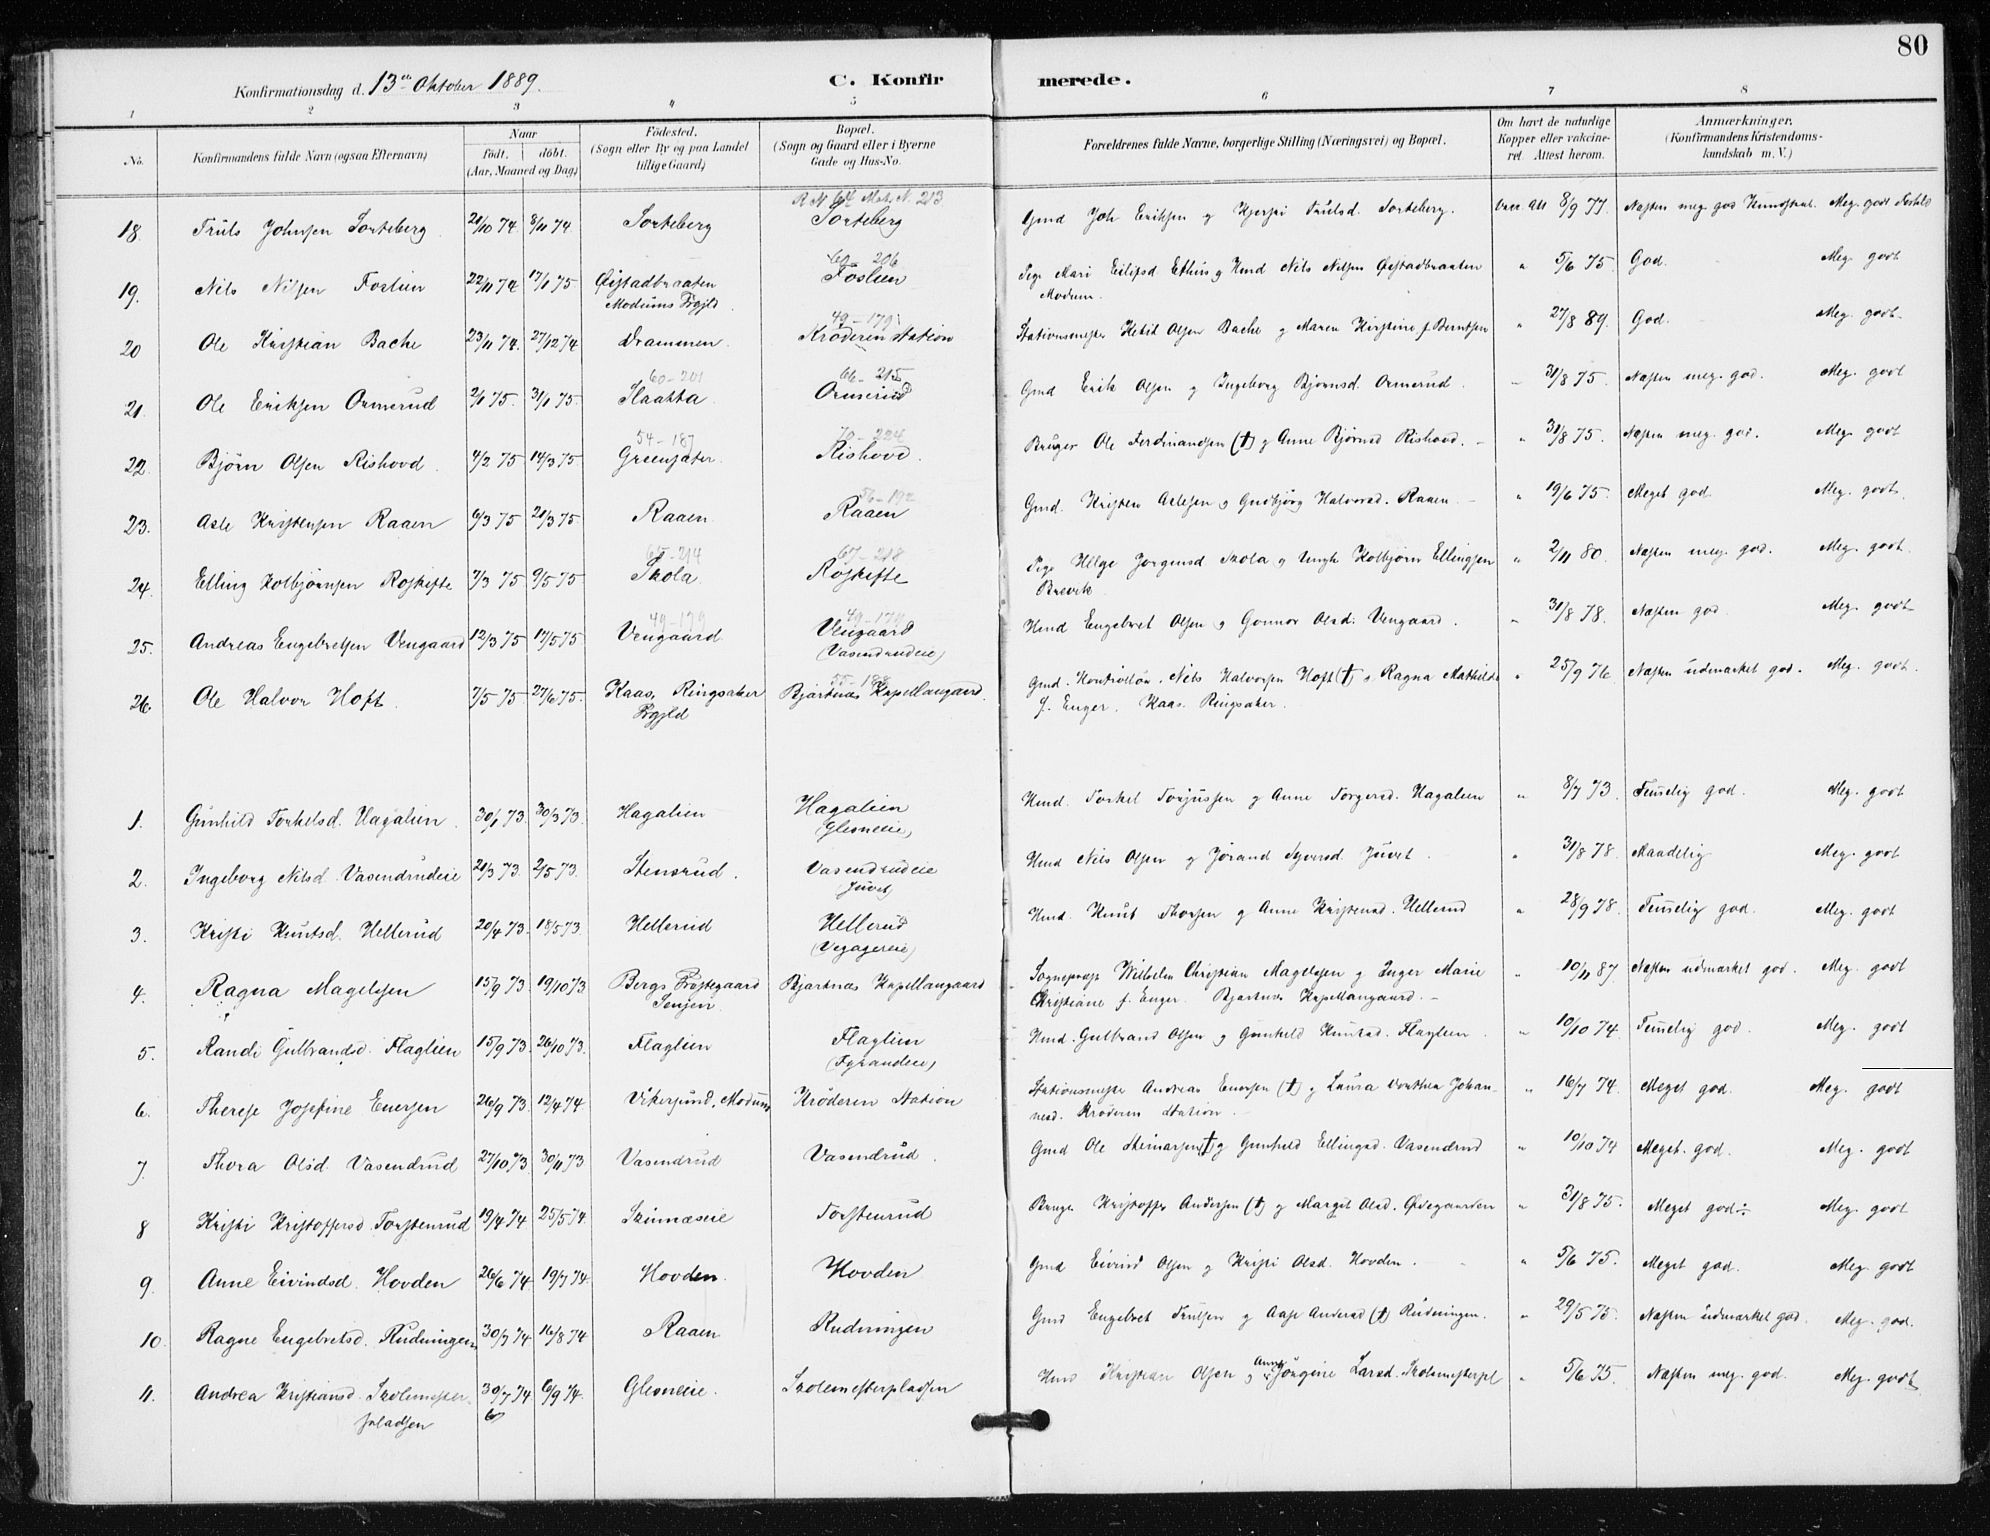 80
Konfirmationsdag d. 13de Oktober 1889. C. Konfirmerede.
1 2 3 4 5 6 7 8
No. Konfirmandens fulde Navn (ogsaa Efternavn) Naar født. døbt. (Aar, Maaned og Dag) Fødested. (Sogn eller By og paa Landet tillige Gaard) Bopæl. (Sogn og Gaard eller i Byerne Gade og Hus-No. Forældrenes fulde Navne, borgerlige Stilling (Næringsvei) og Bopæl. Om havt de naturlige Kopper eller vakcineret. Attest herom. Anmærkninger. (Konfirmandens Kristendomskundskab m. V.)
R N 64 Mats N. 213
18. Truls Johnsen Sorteberg 21/10 74 8/11 74 Sorteberg Sorteberg Gmd Joh Eriksen og Kjersti Trulsd. Sorteberg. Vacc. Att 8/9 77. Næsten meg. god Kundskab Meg. godt Forhold
60-206
19. Nils Nilsen Foslien 22/11 74 17/1 75 Øistadbraaten Foslien Pige Mari Eilifsd Ethus og Hmd Nils Nilsen Øistadbraaten " 5/6 75. God. Meg. godt
Modums Prgjld. Modum.
49-179
20 Ole Kristian Bache 23/11 74. 27/12 74 Drammen. Krøderen Station Stationsmester Ketil Olsen Bache og Maren Kirstine f. Berntsen " 27/8 89. God. Meg. godt.
60-201 66-215
21. Ole Eriksen Ormerud 2/1 75. 31/1 75. Slaatta. Ormerud Gmd Erik Olsen og Ingeborg Bjørnsd. Ormerud. 31/8 75. Næsten meg. god. Meg. godt
54-187 70-224
22. Bjørn Olsen Rishovd. 4/2 75 14/3 75 Greensæter. Rishovd. Bruger Ole Ferdinandsen (†) og Anne Bjørnsd Rishovd. " 31/8 75. Næsten meg. god. Meg. godt
56-192
23. Asle Kristensen Raaen 6/3 75 21/3 75. Raaen Raaen Gmd. Kristen Aslesen og Gudbjørg Halvorsd. Raaen. " 19/6 75. Meget god. Meg. godt.
65-214 67-218
24. Elling Kolbjørnsen Røskifte 7/3 75 9/5 75 Skola. Røskifte Pige Helge Jørgensd Skola og Ungk Kolbjørn Ellingsen " 2/11 80. Næsten meg. god. Meg. godt.
Brevik.
49-179 49-179
25. Andreas Engebretsen Vengaard 12/3 75 17/5 75 Vengaard Vengaard Hmd Engebret Olsen og Gonnor Olsd. Vengaard. " 31/8 78. Næsten god. Meg. godt
(Vasendrudeie)
55-188
26. Ole Halvor Hoft 7/5 75 27/6 75. Kaas, Ringsaker Bjartnæs Kapellangaard. Gmd. Kontrollør. Nils Halvorsen Hoft (†) og Ragna Mathilde " 25/9 76. Næsten udmærket god. Meg. godt.
Prgjld f. Enger. Kaas. Ringsaker.
1. Gunhild Torkelsd. Hagalien. 30/1 73. 30/3 73. Hagalien Hagalien Hmd. Torkel Torjussen og Anne Torgersd. Hagalien " 8/7 73. Temelig god. Meg. godt
(Glesneeie)
2. Ingeborg Nilsd Vasendrudeie 21/3 73. 2/5 73. Stensrud. Vasendrudeie Hmd Nils Olsen og Jørand Syversd. Juvet. " 31/8 78. Maadelig Meg. godt
(Juvet)
3. Kristi Knutsd. Hellerud 20/4 73. 18/5 73. Hellerud Hellerud Hmd. Knut Thorsen og Anne Kristensd. Hellerud " 28/9 78. Temelig god. Meg. godt
(Vegagereie)
4. Ragna Magelssen 15/9 73 19/10 73. Bergs Præstegaard Bjartnæs Kapellangaard Sognepræst Wilhelm Christian Magelssen og Inger Marie " 10/11 87. Næsten udmærket god. Meg. godt
Senjen. Christiane f. Enger. Bjartnæs Kapellangaard.
5. Randi Gulbrandsd. Flaglien 15/9 73. 26/10 73. Flaglien Flaglien Hmd. Gulbrand Olsen og Gunhild Knutsd. Flaglien. " 10/10 74. Temelig god. Meg. godt
(Fyrandeie)
6. Therese Josefine Enersen 26/9 73. 12/4 74 Vikersund, Modum Krøderen Station Stationsmester Andreas Enersen (†) og Laura Dorthea Johan- " 16/7 74. Meget god. Meg. godt
nesd. Krøderen Station.
7. Thora Olsd Vasendrud 27/10 73 30/11 73 Vasendrud Vasendrud. Gmd Ole Steinarsen (†) og Gunhild Ellingsd. Vasendrud " 10/10 74 Meget. god. Meg. godt
8 Kristi Kristoffersd. Torstenrud 19/4 74 25/5 74. Skinnæseie Torstenrud Bruger Kristoffer Andersen (†) og Margit Olsd. Ødegaarden " 31/8 75. Meget god÷ Meg. godt
9. Anne Eivindsd. Hovden 26/6 74 19/7 74. Hovden. Hovden Gmd Eivind Olsen og Kristi Olsd. Hovden. " 5/6 75. Meget god. Meg. godt
10. Ragne Engebretsd. Rudningen 30/7 74 16/8 74. Raaen Rudningen Gmd Engebret Trulsen og Aase Andersd (†) Rudningen. " 29/5 75. Næsten udmærket god. Meg. god.
11. Andrea Kristiansd. Skolemester- 30/7 74 6/9 74. Glesneeie. Skolemesterpladsen Hmd Kristian Olsen og Anne Jørgine Larsd. Skolemesterpl " 5/6 75. Næsten meg. god. Meg. godt
pladsen 6